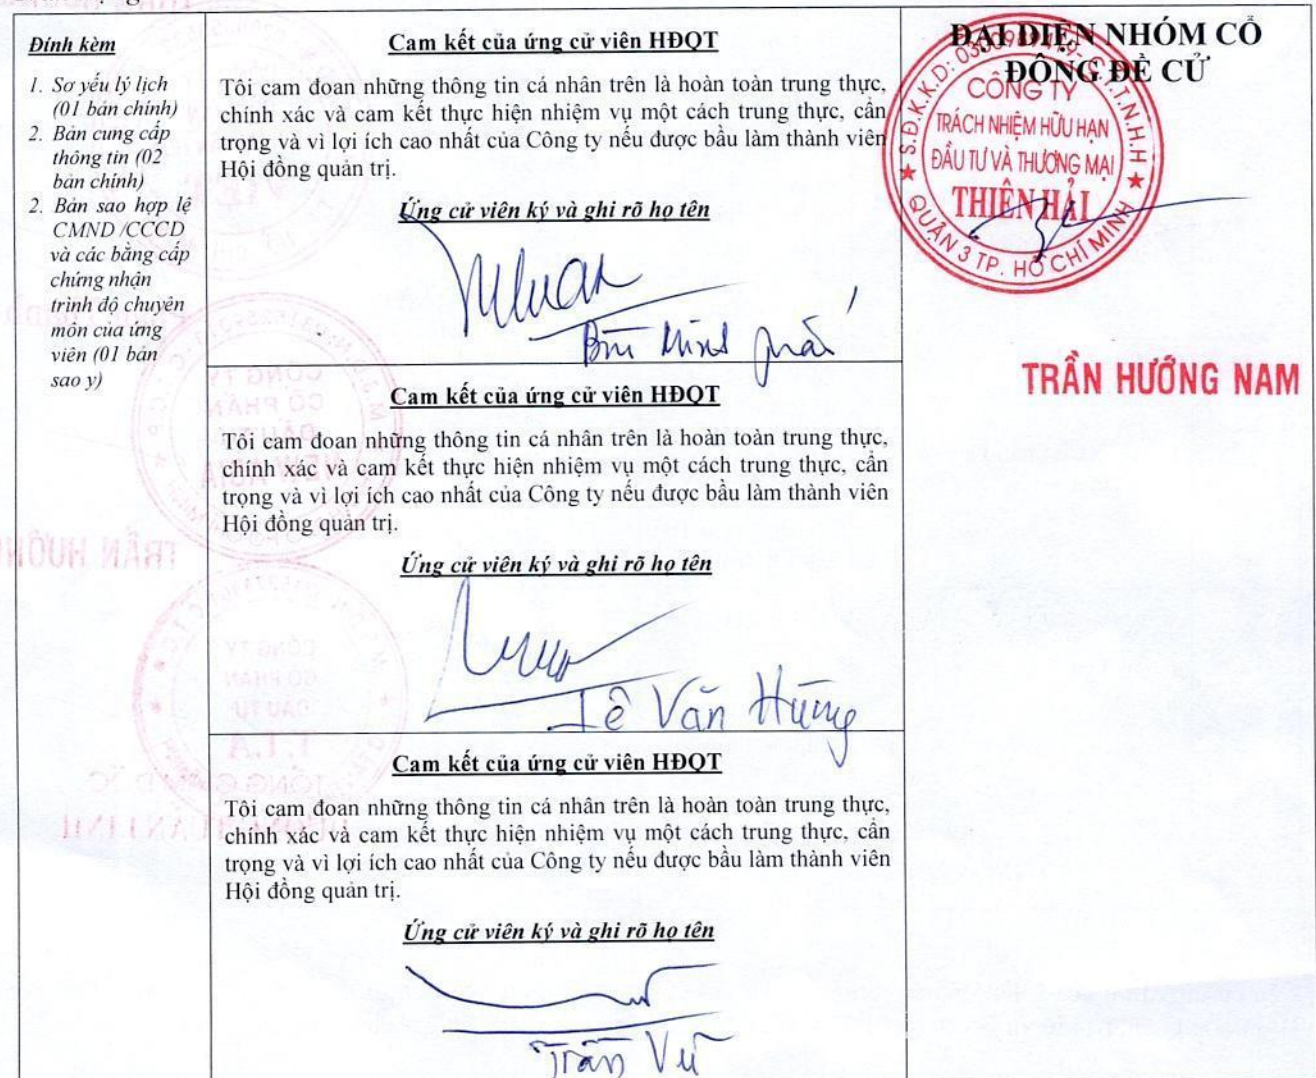 Đính kèm
1. Sơ yếu lý lịch
(01 bản chính)
2. Bản cung cấp
thông tin (02
bản chính)
2. Bản sao hợp lệ
CMND /CCCD
và các bằng cấp
chứng nhận
trình độ chuyên
môn của ứng
viên (01 bản
sao y)
Cam kết của ứng cử viên HĐQT
Tôi cam đoan những thông tin cá nhân trên là hoàn toàn trung thực,
chính xác và cam kết thực hiện nhiệm vụ một cách trung thực, cẩn
trọng và vì lợi ích cao nhất của Công ty nếu được bầu làm thành viên
Hội đồng quản trị.
Ứng cử viên ký và ghi rõ họ tên
Cam kết của ứng cử viên HĐQT
Tôi cam đoan những thông tin cá nhân trên là hoàn toàn trung thực,
chính xác và cam kết thực hiện nhiệm vụ một cách trung thực, cẩn
trọng và vì lợi ích cao nhất của Công ty nếu được bầu làm thành viên
Hội đồng quản trị.
Ứng cử viên ký và ghi rõ họ tên
Lê Văn Hùng
Cam kết của ứng cử viên HĐQT
Tôi cam đoan những thông tin cá nhân trên là hoàn toàn trung thực,
chính xác và cam kết thực hiện nhiệm vụ một cách trung thực, cẩn
trọng và vì lợi ích cao nhất của Công ty nếu được bầu làm thành viên
Hội đồng quản trị.
Ứng cử viên ký và ghi rõ họ tên
Trần Vũ
ĐẠI DIỆN NHÓM CỔ
ĐÔNG ĐỀ CỬ
CÔNG TY
TRÁCH NHIỆM HỮU HẠN
ĐẦU TƯ VÀ THƯƠNG MẠI
THIÊN HẢI
QUẬN 3 TP. HỒ CHÍ MINH
TRẦN HƯỚNG NAM